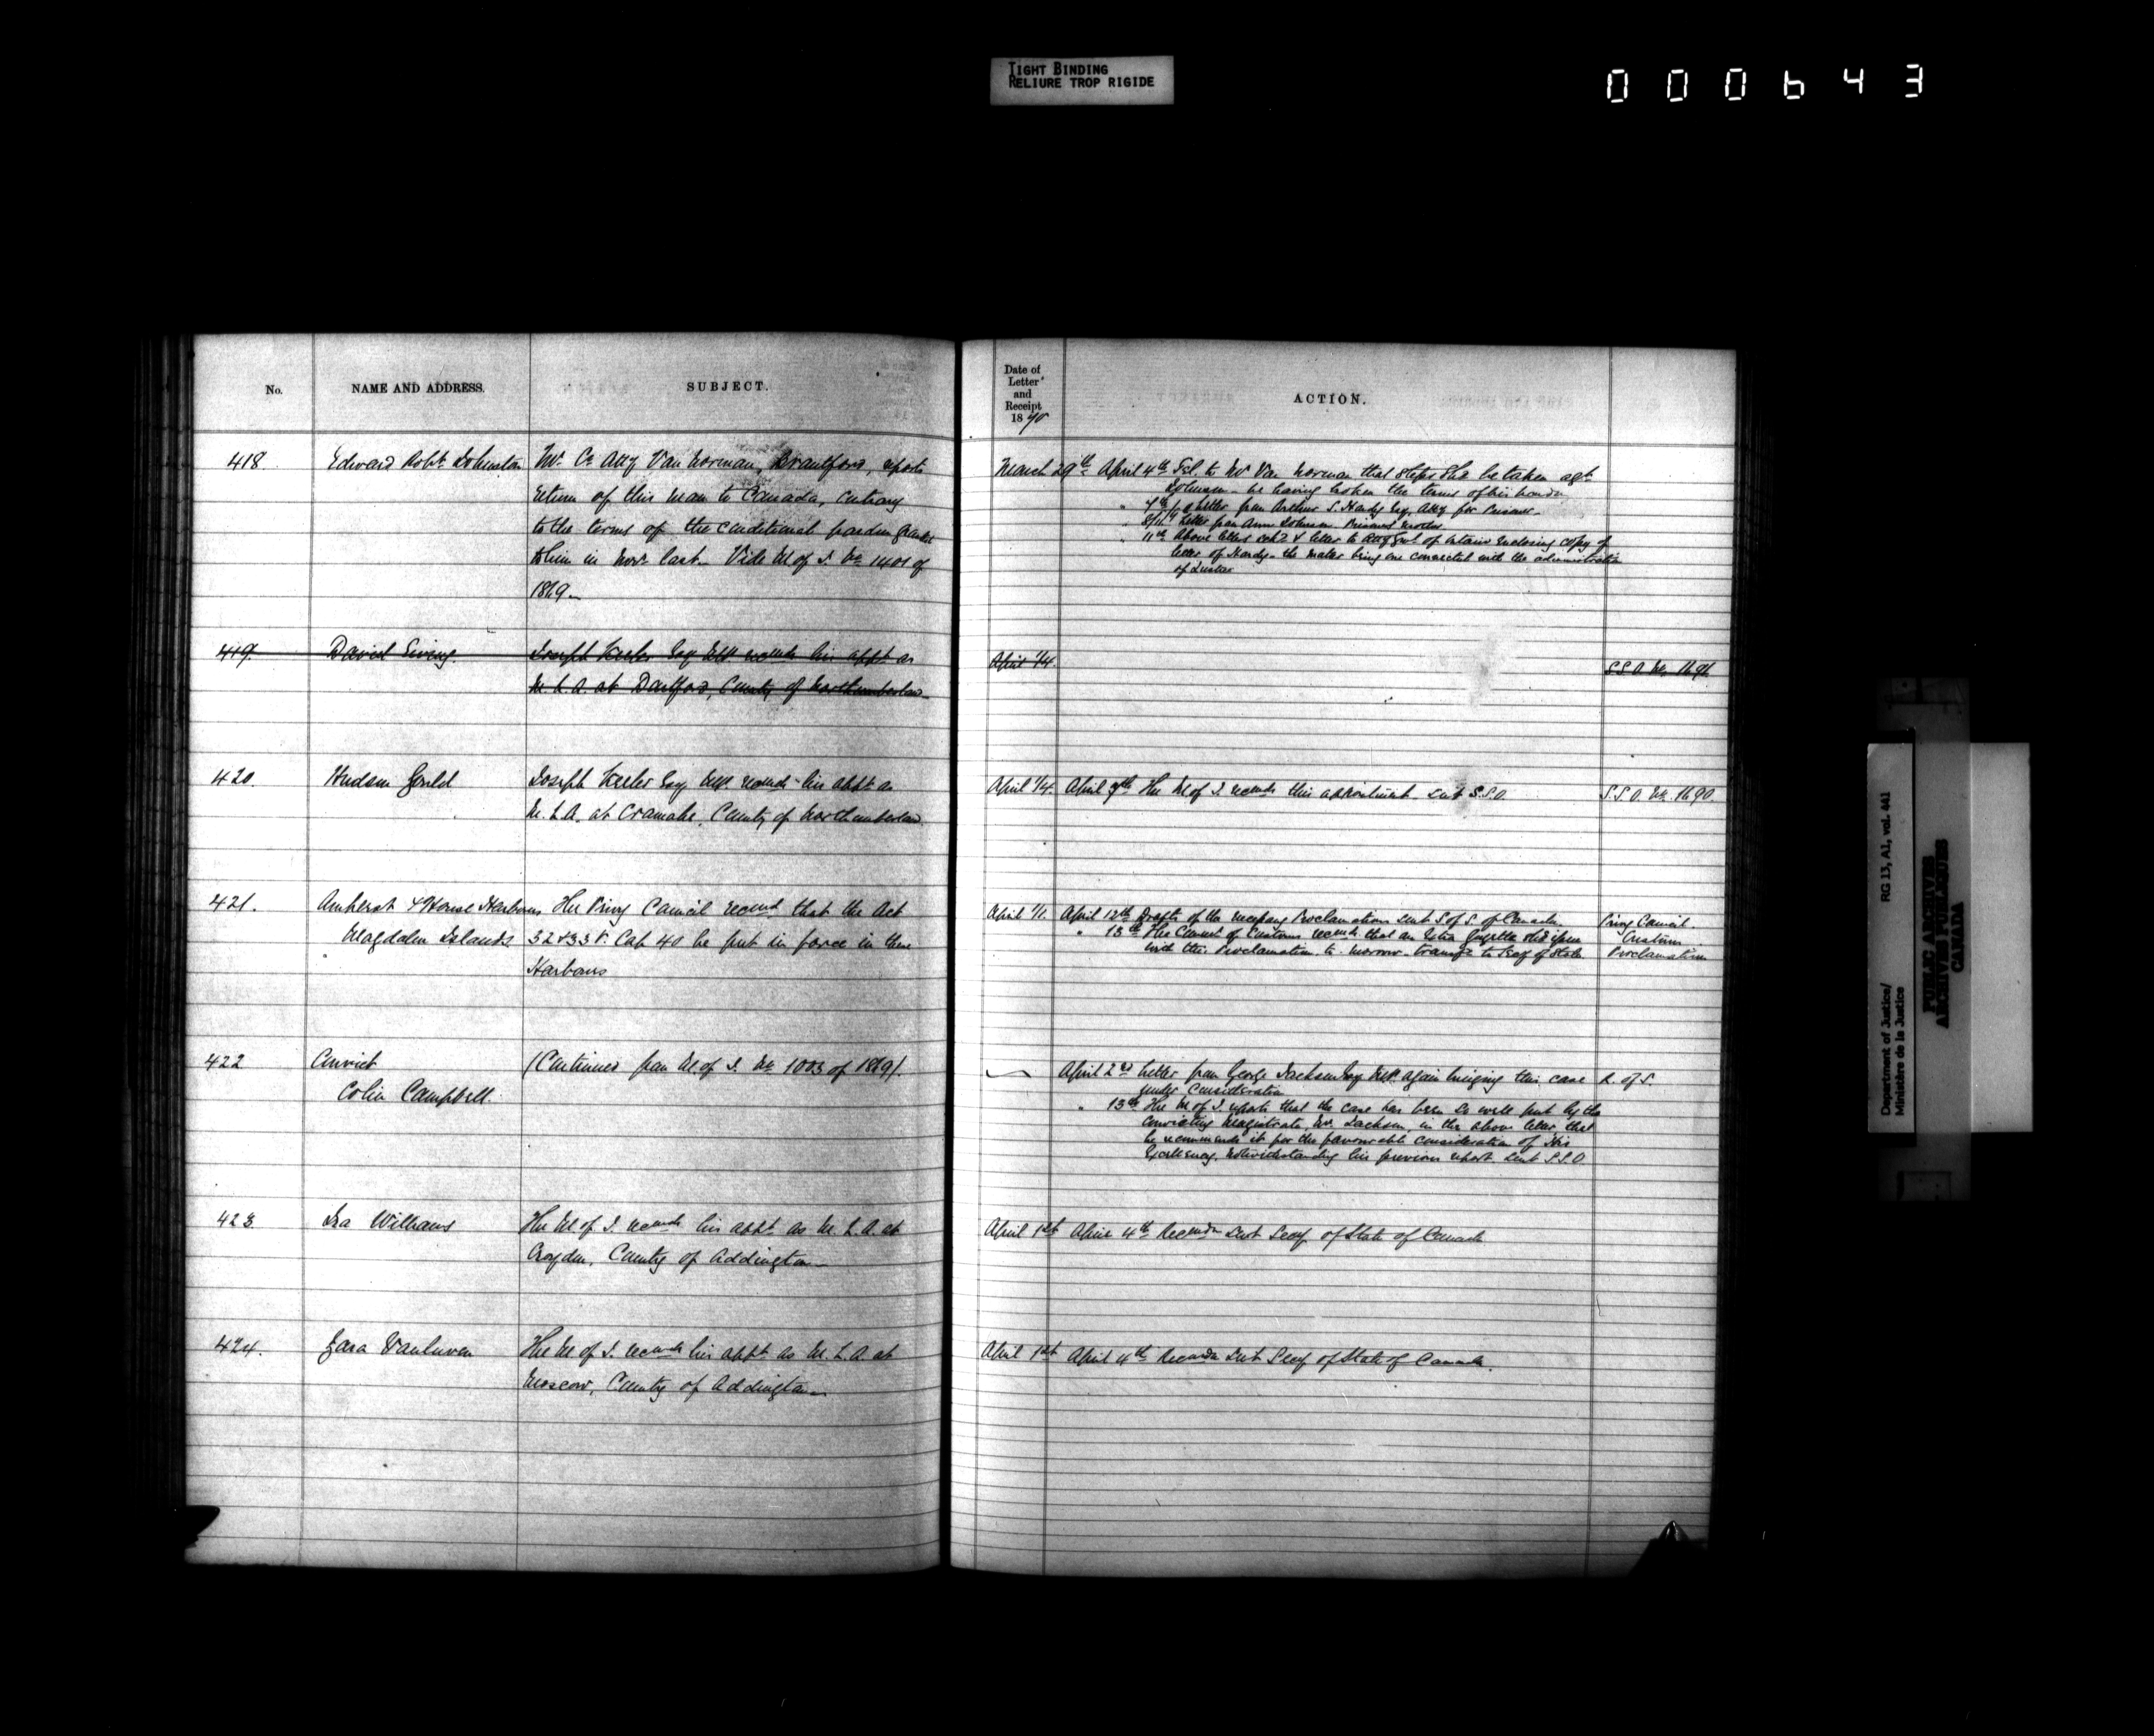 TIGHT BINDING
RELIURE TROP RIGIDE
000643
No.
NAME AND ADDRESS.
SUBJECT.
418
Edward Robt. Johnston
Mr. Co. Atty Van Norman, Brantford, reports
return of this man to Canada, contrary
to the terms of the conditional pardon granted
to him in Novr. last. Vide M of J. No. 1401 of
1869.
419.
David Ewing.
Joseph Keeler Esq MP. recmds his appt as
M. L. A. at Dartford, County of Northumberland
420.
Hudson Gould
Joseph Keeler Esq MP. recmds his appt as
M. L. A. at Cramahe, County of Northumberland
421.
Amherst & House Harbours
Magdalen Islands
The Privy Council recmd that the Act
32 & 33 V. Cap 40 be put in force in these
Harbours
422
Convict
Colin Campbell.
(Continued from M. of J. No. 1003 of 1869).
423
Ira Williams
The M of J. recmds his appt. as M. L. A. at
Croydon, County of Addington
424.
Vanluven
The M of J. recmds his appt as M. L. A. at
Moscow, County of Addington
Date of
Letter
and
Receipt
1870
ACTION.
March 29th
April 4th Tel. to Mr Van Norman that steps shd be taken agt
Johnson - he having broken the terms of his
7th letter from Arthur S. Hardy Esq. Atty for Prisoner
letter from Anne Johnson Prisoners mother
" 11th Above letters & letter to Atty Genl. of Ontario enclosing copy of
letter of Hardy - the matter being one connected with the administration
of Justice
April 1/4.
S.S.O. No. 1691
April 1/4.
April 9th The M of J. recmds this appointment sent S.S.O.
S.S.O. No. 1690.
April 1/11.
April 12th Drafts of the necessary Proclamations sent S of S. of Canada.
" 13th The Commr of Customs recmds that an Extra Gazette shd issue
with this Proclamation to-morrow - transfd to Secy of State
Privy Council.
Customs
Proclamation
April 2nd Letter from George Jackson Esq MP. again bringing this case
under consideration
" 13th The M of J. reports that the case has been so well put by the
convicting Magistrate, Mr. Jackson, in the above letter, that
he recommends it for the favourable consideration of His
Excellency, notwithstanding his previous report. sent S.S.O.
R. of S.
April 1st
April 4th Recmdn sent Secy of State of Canada
April 1st
April 4th Recmdn sent Secy of State of Canada.
Department of Justice/
Ministère de la Justice
RG 13, A1, vol. 441
PUBLIC ARCHIVES
ARCHIVES PUBLIQUES
CANADA